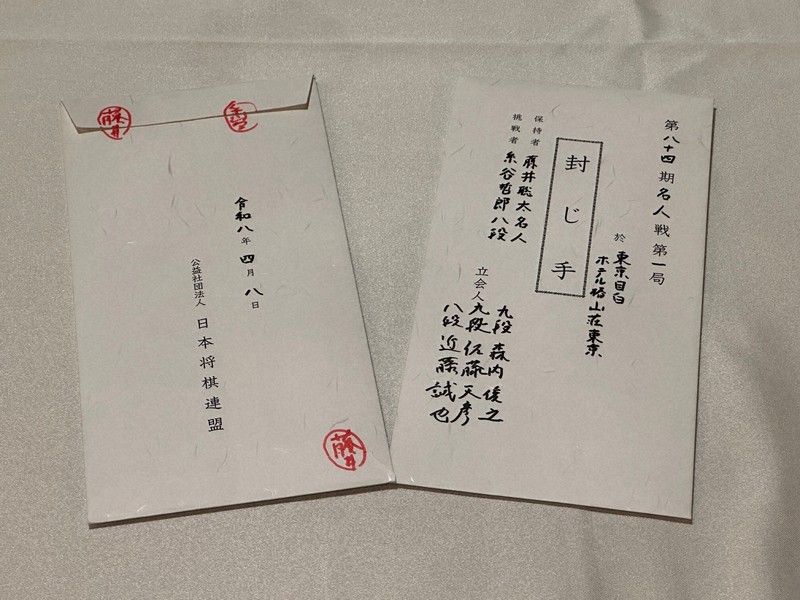 第八十四期名人戦第一局
於 東京目白
ホテル椿山荘東京
封じ手
保持者 藤井聡太名人
挑戦者 糸谷哲郎八段
立会人 九段 森内俊之
九段 佐藤天彦
八段 近藤誠也
藤井
糸谷
令和八年四月八日
公益社団法人 日本将棋連盟
藤井